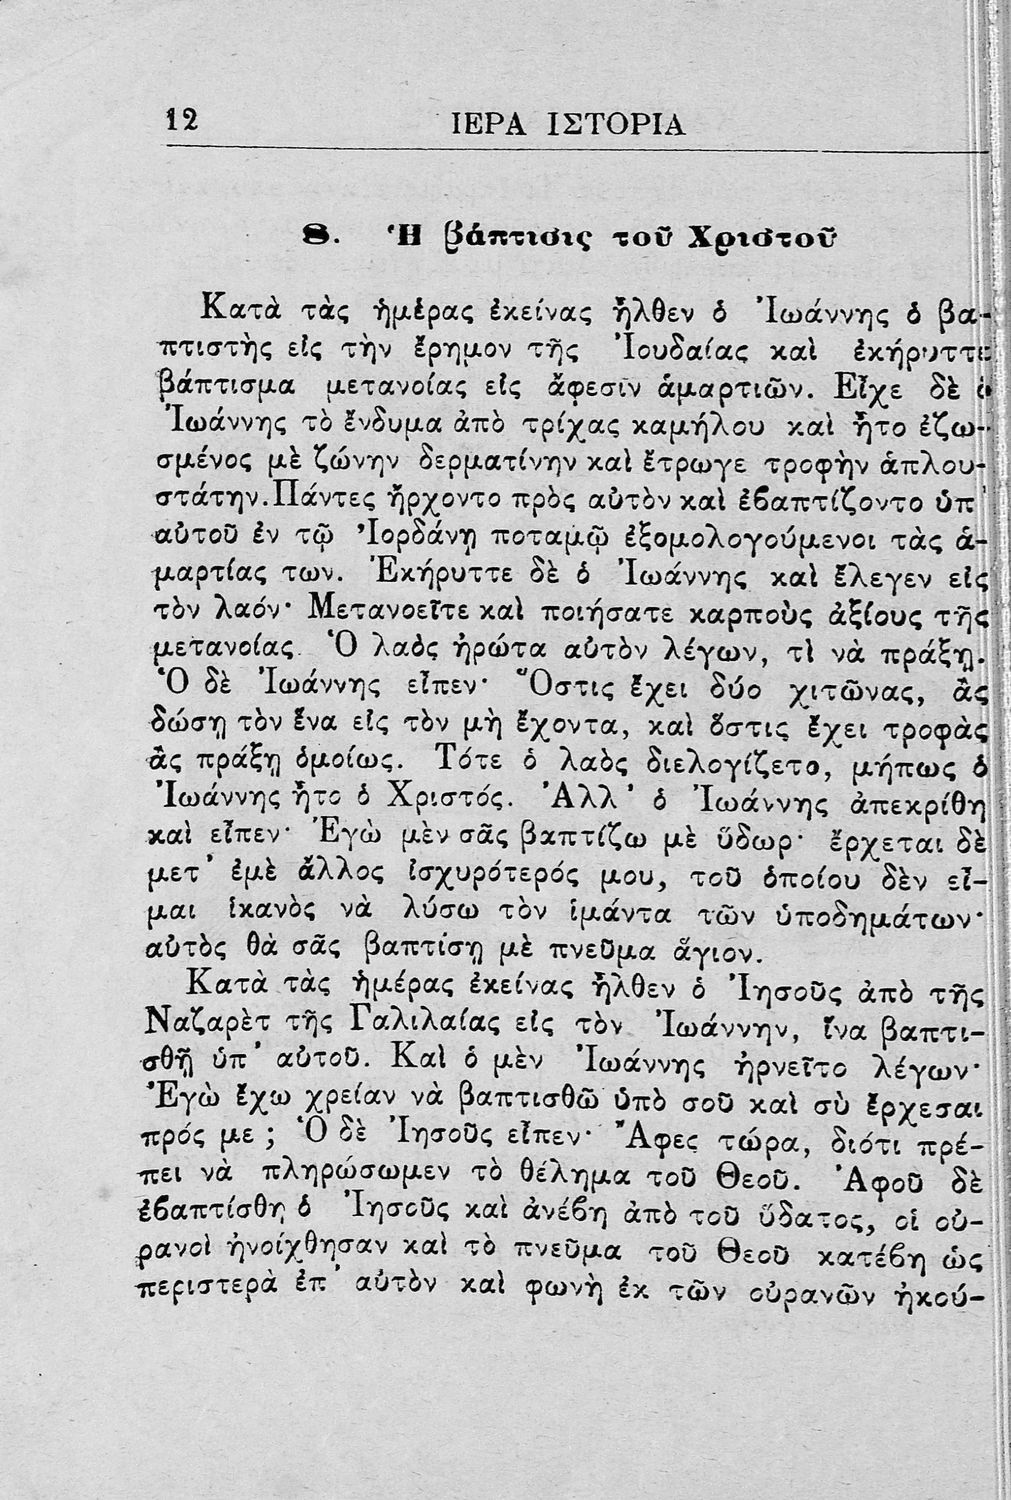 12 ΙΕΡΑ ΙΣΤΟΡΙΑ
8. Ἡ βάπτισις τοῦ Χριστοῦ
Κατὰ τὰς ἡμέρας ἐκείνας ἦλθεν ὁ Ἰωάννης ὁ βα-
πτιστὴς εἰς τὴν ἔρημον τῆς Ἰουδαίας καὶ ἐκήρυττε
βάπτισμα μετανοίας εἰς ἄφεσιν ἁμαρτιῶν. Εἶχε δὲ ὁ
Ἰωάννης τὸ ἔνδυμα ἀπὸ τρίχας καμήλου καὶ ἦτο ἐζω-
σμένος μὲ ζώνην δερματίνην καὶ ἔτρωγε τροφὴν ἁπλου-
στάτην. Πάντες ἤρχοντο πρὸς αὐτὸν καὶ ἐϐαπτίζοντο ὑπ'
αὐτοῦ ἐν τῷ Ἰορδάνῃ ποταμῷ ἐξομολογούμενοι τὰς ἁ-
μαρτίας των. Ἐκήρυττε δὲ ὁ Ἰωάννης καὶ ἔλεγεν εἰς
τὸν λαόν· Μετανοεῖτε καὶ ποιήσατε καρποὺς ἀξίους τῆς
μετανοίας. Ὁ λαὸς ἠρώτα αὐτὸν λέγων, τὶ νὰ πράξῃ.
Ὁ δὲ Ἰωάννης εἶπεν· Ὅστις ἔχει δύο χιτῶνας, ἂς
δώσῃ τὸν ἕνα εἰς τὸν μὴ ἔχοντα, καὶ ὅστις ἔχει τροφὰς
ἂς πράξῃ ὁμοίως. Τότε ὁ λαὸς διελογίζετο, μήπως ὁ
Ἰωάννης ἦτο ὁ Χριστός. Ἀλλ' ὁ Ἰωάννης ἀπεκρίθη
καὶ εἶπεν· Ἐγὼ μὲν σᾶς βαπτίζω μὲ ὕδωρ· ἔρχεται δὲ
μετ' ἐμὲ ἄλλος ἰσχυρότερός μου, τοῦ ὁποίου δὲν εἶ-
μαι ἱκανὸς νὰ λύσω τὸν ἱμάντα τῶν ὑποδημάτων·
αὐτὸς θὰ σᾶς βαπτίσῃ μὲ πνεῦμα ἅγιον.
Κατὰ τὰς ἡμέρας ἐκείνας ἦλθεν ὁ Ἰησοῦς ἀπὸ τῆς
Ναζαρὲτ τῆς Γαλιλαίας εἰς τὸν Ἰωάννην, ἵνα βαπτι-
σθῇ ὑπ' αὐτοῦ. Καὶ ὁ μὲν Ἰωάννης ἠρνεῖτο λέγων·
Ἐγὼ ἔχω χρείαν νὰ βαπτισθῶ ὑπὸ σοῦ καὶ σὺ ἔρχεσαι
πρός με ; Ὁ δὲ Ἰησοῦς εἶπεν· Ἄφες τώρα, διότι πρέ-
πει νὰ πληρώσωμεν τὸ θέλημα τοῦ Θεοῦ. Ἀφοῦ δὲ
ἐϐαπτίσθη ὁ Ἰησοῦς καὶ ἀνέϐη ἀπὸ τοῦ ὕδατος, οἱ οὐ-
ρανοὶ ἠνοίχθησαν καὶ τὸ πνεῦμα τοῦ Θεοῦ κατέϐη ὡς
περιστερὰ ἐπ' αὐτὸν καὶ φωνὴ ἐκ τῶν οὐρανῶν ἠκού-